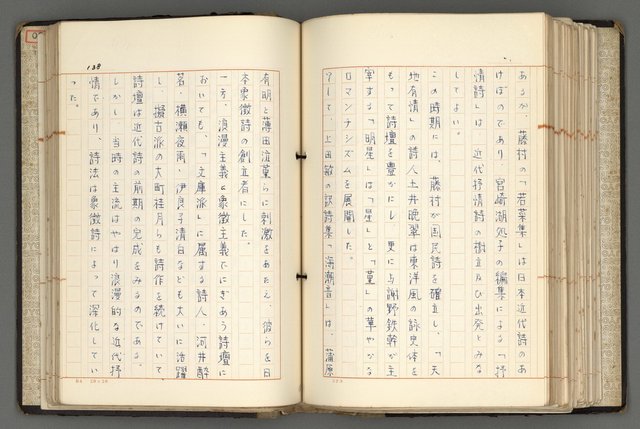 あるが、藤村の「若菜集」は日本近代詩のあ
けぼのであり、宮崎湖処子の編集による「抒
情詩」は、近代抒情詩の樹立及び出発とみな
してよい。
この時期には、藤村が国民詩を確立し、「天
地有情」の詩人土井晩翠は東洋風の詠史体を
もって詩壇を豊かにし、更に与謝野鉄幹が主
宰する「明星」は「星」と「菫」の華やかな
ロマンチシズムを展開した。
そして、上田敏の訳詩集「海潮音」は、蒲原
138
有明と薄田泣菫らに刺激をあたえ、彼らを日
本象徴詩の創立者にした。
一方、浪漫主義や象徴主義でにぎあう詩壇に
おいても、「文庫派」に属する詩人、河井酔
茗、横瀬夜雨、伊良子清白なども大いに活躍
し、擬古派の大町桂月らも詩作を続けていて
詩壇は近代詩の前期の完成をみるのである。
しかし、当時の主流はやはり浪漫的な近代抒
情であり、詩法は象徴詩によって深化してい
った。
20×20